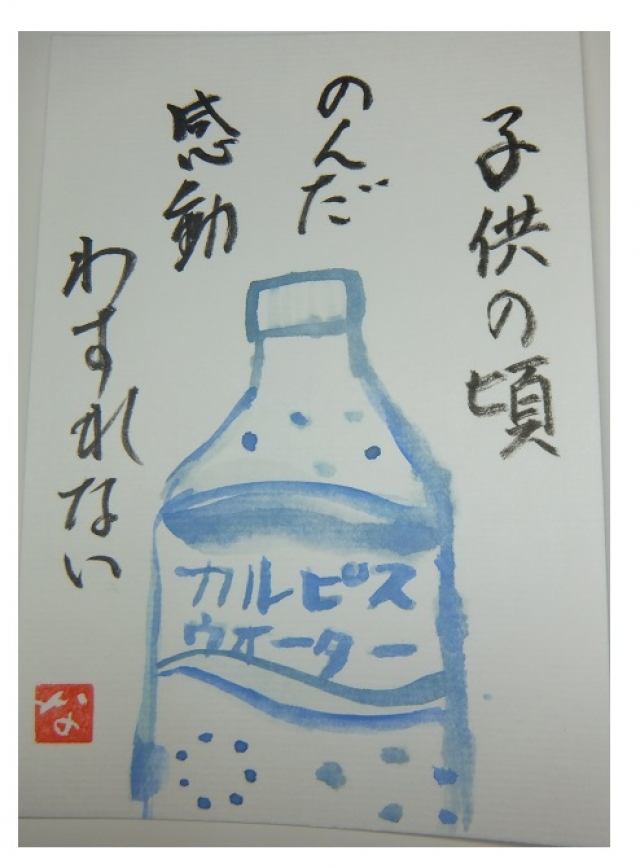 子供の頃
のんだ
感動
わすれない
カルピス
ウォーター
な